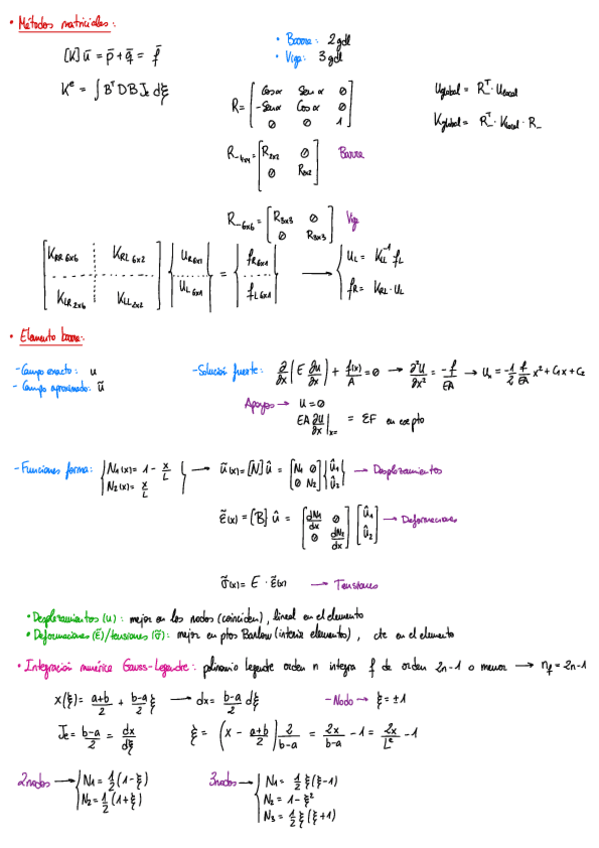 • Métodos matriciales:
[K]ū = p̄ + q̄ = f̄
• Barra: 2 gdl
• Viga: 3 gdl
Kᵉ = ∫ BᵀDB Je dξ
R = [Cosα Senα 0
-Senα Cosα 0
0 0 1]
Uglobal = Rᵀ · Ulocal
Kglobal = Rᵀ · Klocal · R
R_4x4 = [R2x2 0
0 R2x2] Barra
R_6x6 = [R3x3 0
0 R3x3] Viga
[KRR 6x6 KRL 6x2
KLR 2x6 KLL 2x2] {UR 6x1
UL 6x1} = {fR 6x1
fL 6x1} → {UL = KLL⁻¹ fL
fR = KRL · UL
• Elemento barra:
- Campo exacto: u
- Campo aproximado: ũ
- Solución fuerte: ∂/∂x (E ∂u/∂x) + f(x)/A = 0 → ∂²u/∂x² = -f/EA → Ux = -1/2 f/EA x² + C1x + C2
Apoyos → u = 0
EA ∂u/∂x|x= = ΣF en ese pto
- Funciones forma: {N1(x) = 1 - x/L
N2(x) = x/L} → ũ(x) = [N] û = [N1 0
0 N2] {û1
û2} → Desplazamientos
ε̃(x) = [B] û = [dN1/dx 0
0 dN2/dx] [û1
û2] → Deformaciones
σ̃(x) = E · ε̃(x) → Tensiones
• Desplazamientos (u): mejor en los nodos (coinciden), lineal en el elemento
• Deformaciones (ε̃)/tensiones (σ̃): mejor en ptos Barlow (interior elementos), cte en el elemento
• Integración numérica Gauss-Legendre: polinomio legendre orden n integra f de orden 2n-1 o menor → nf = 2n-1
x(ξ) = a+b/2 + b-a/2 ξ → dx = b-a/2 dξ
- Nodo → ξ = ±1
Je = b-a/2 = dx/dξ
ξ = (x - a+b/2) 2/b-a = 2x/b-a - 1 = 2x/Lᵉ - 1
2 nodos → {N1 = 1/2 (1-ξ)
N2 = 1/2 (1+ξ)
3 nodos → {N1 = 1/2 ξ(ξ-1)
N2 = 1-ξ²
N3 = 1/2 ξ(ξ+1)